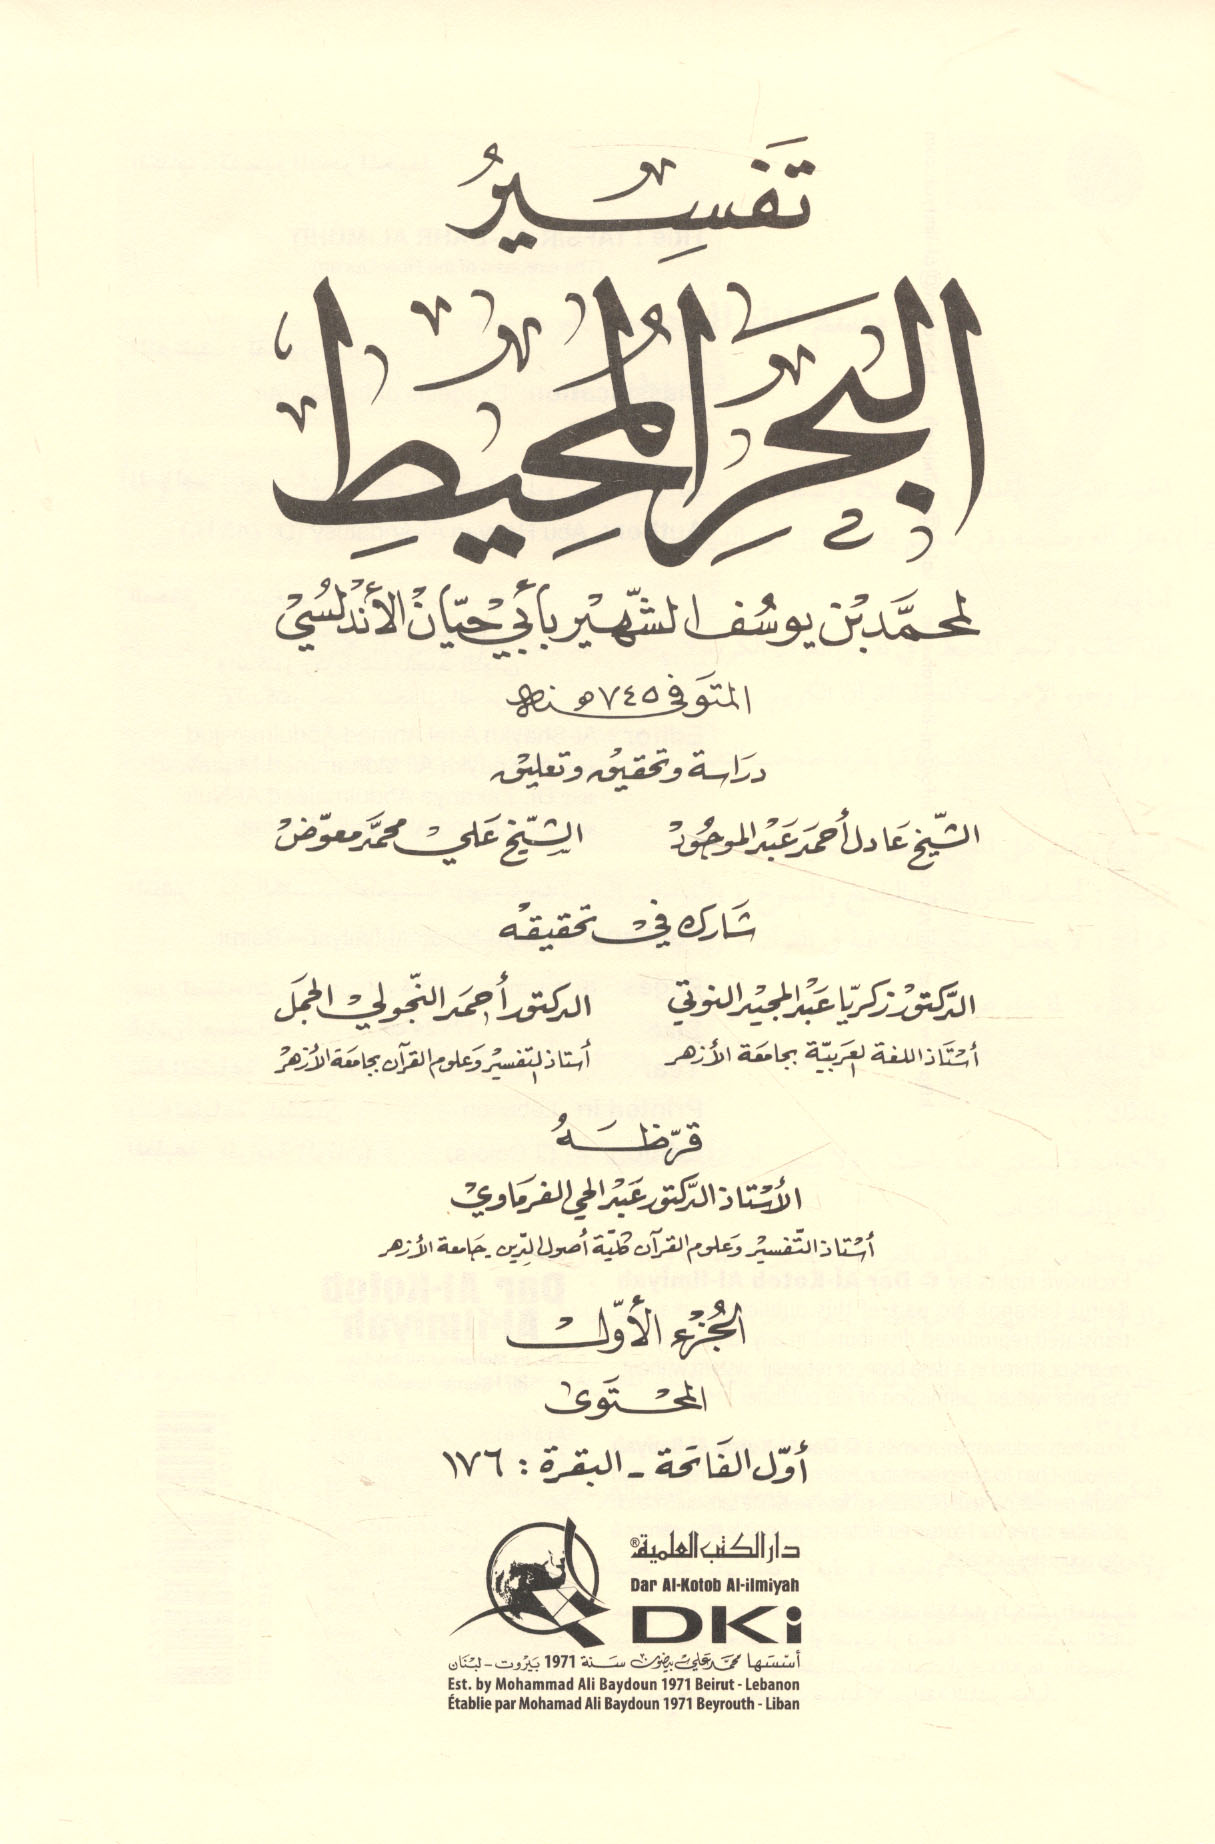 تَفسِيرُ
البَحْرَ المُحيطِ
لمحمَّد بْن يوسُف الشّهير بأبي حيّان الأندلسيْ
المتوَفى ٧٤٥ هـ نة
درَاسة وتحقيق وتعليق
الشّيخ عَادل أحمَد عَبْد الموجُود الشّيخ عَلي محمَّد معوّض
شَارك في تحقيقه
الدّكتور زكريّا عَبْد المجيْد النوتي الدكتور أحمَد النّجولي الجمَل
أستَاذ اللغة العَربيّة بجامعَة الأزهر أستاذ التّفسير وَعلوم القرآن بجامعَة الأزهر
قرّظـهُ
الأسْتاذ الدّكتور عَبْد الحي الفرمَاويْ
أسْتاذ التّفسير وَعلوم القرآن كليّة أصول الدّين - جامعة الأزهر
الجُزء الأوّل
المحْتوَى
أوّل الفَاتحة - البقرة : ١٧٦
دار الكتب العلمية®
Dar Al-Kotob Al-ilmiyah
DKi
أسّسَها محمَّد عَلي بيضون سَنة 1971 بَيْروت - لبْنَان
Est. by Mohammad Ali Baydoun 1971 Beirut - Lebanon
Établie par Mohamad Ali Baydoun 1971 Beyrouth - Liban